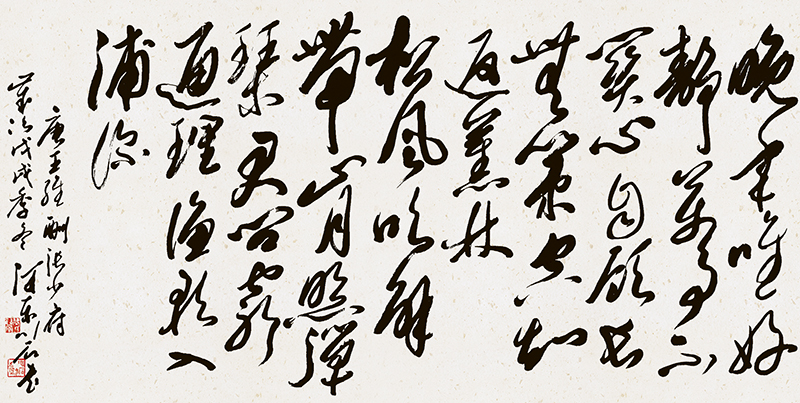 晚年唯好
靜萬事不
关心自顾长
無策空知
返舊林
松风吹解
帶山月照彈
琴君问窮
通理渔歌入
浦深
唐王维酬張少府
歲次戊戌季冬河东